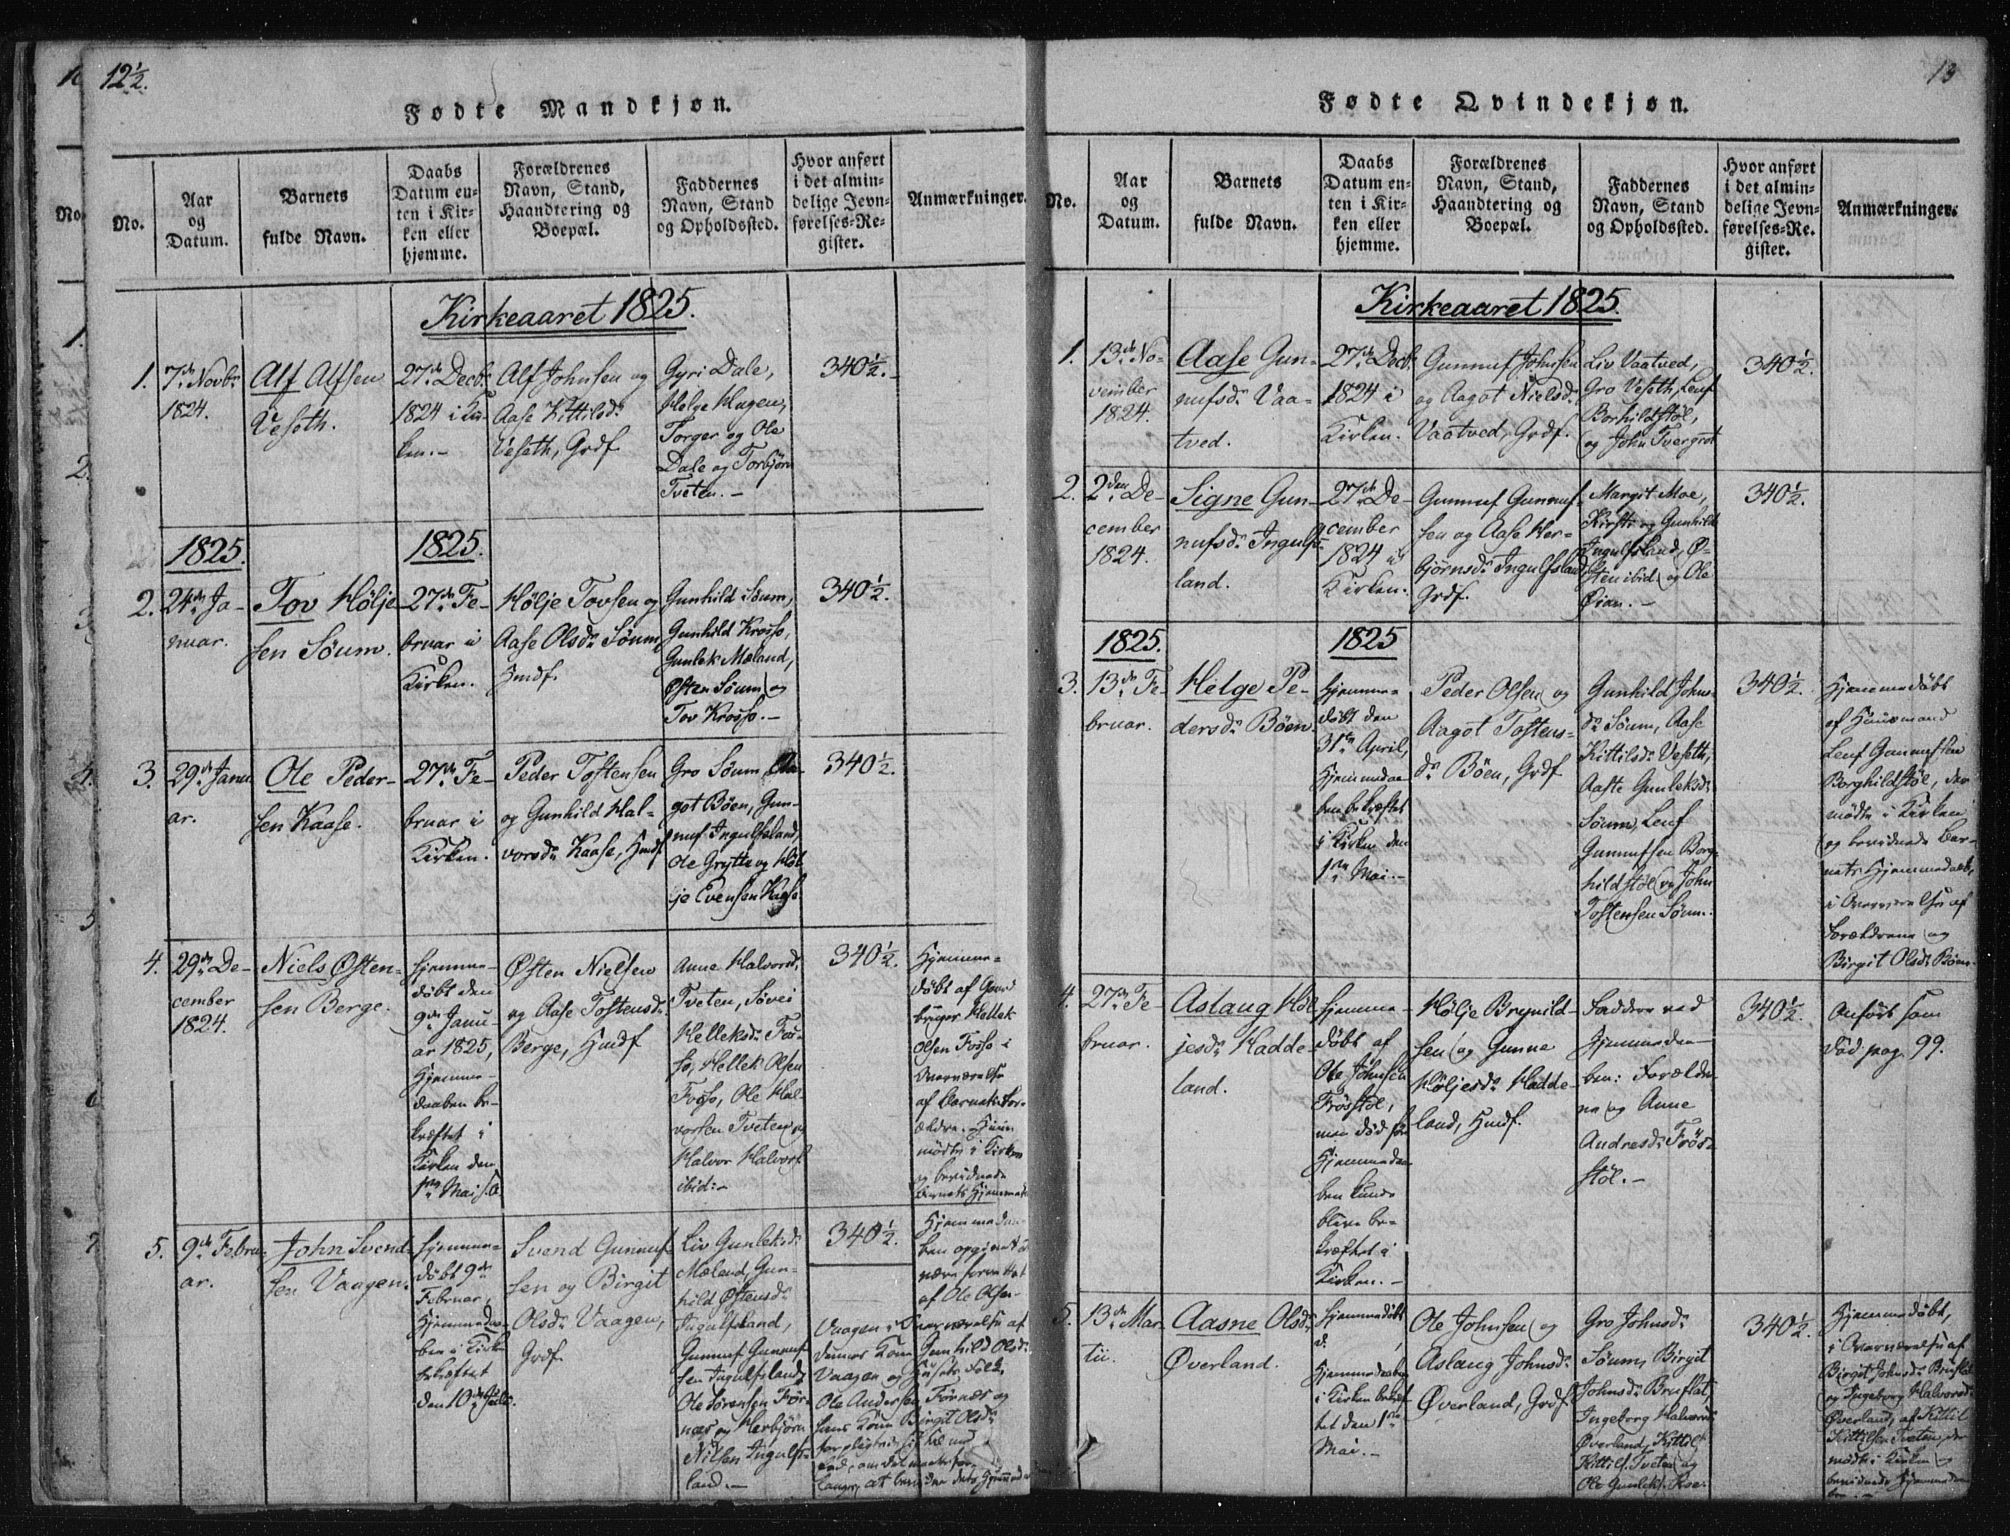 12½.
Fødte Mandkjøn.
No.
Aar
og
Datum.
Barnets
fulde Navn.
Daabs
Datum en-
ten i Kir-
ken eller
hjemme.
Forældrenes
Navn, Stand,
Haandtering og
Boepæl.
Faddernes
Navn, Stand
og Opholdssted.
Hvor anført
i det almin-
delige Jevn-
førelses-Re-
gister.
Anmærkninger.
Kirkeaaret 1825.
1.
7de Novbr
1824.
Alf Alfsen
Veseth.
27de Decbr
1824 i Kir-
ken.-
Alf Johnsen og
Aase Kittilsdr
Veseth, Grdf.
Gyri Dale,
Helge Hagen,
Torger og Ole
Dale og Torbjørn
Tveten.-
340½.-
1825.
1825.
2.
24de Ja-
nuar.
Tov Hölje-
sen Söum.
27de Fe-
bruar i
Kirken.
Hölje Tovsen og
Aase Olsdr Söum,
Hmdf.
Gunhild Söum,
Gunhild Krosso,
Gunlek Mæland,
Østen Söum og
Tov Krosso.-
340½.
3.
29de Janu-
ar.
Ole Peder-
sen Kaase.
27de Fe-
bruar i
Kirken.
Peder Tostensen
og Gunhild Hal-
vorsdr Kaase, Hmdf
Gro Söum, Aa-
got Böen, Gun-
nuf Ingulfsland,
Ole Grytte og Höl-
je Evensen Kaase
340½.
4.
29de De-
cember
1824.
Niels Østen-
sen Berge.
Hjemme-
döbt den
9de Janu-
ar 1825,
Hjemme-
daaben be-
kræftet i
Kirken den
1ste Mai s.A.
Østen Nielsen
og Aase Tostensdr
Berge, Hmdf
Anne Halvorsd.
Tveten, Sövei
Helleksdr Fos-
so, Hellek Olsen
Fosso, Ole Hal-
vorsen Tveten og
Halvor Halvors.
ibid.-
340½.
Hjemme-
döbt af Gaard-
bruger Hellek
Olsen Fosso i
Overværelse
af Barnets For-
ældre.
mödte i Kirken
og bevidnede
Barnets Hjemmed.
5.
9de Febru-
ar.
John Svend-
sen Vaagen.
Hjemme-
döbt 9de
Februar,
Hjemmedaa-
ben i Kirken
bekræftet
den 10de Julii.
Svend Gunnuf-
sen og Birgit
Olsdr Vaagen,
Grdf.
Liv Gunleksdr
Mæland, Gun-
hild Østensdr
Ingulfsland,
Gunnuf Gunnuf-
sen Ingulfsland,
Ole Sörensen For-
næs og Herbjörn
Nilsen Ingulfs-
land.-
340½.
Hjemmedaa-
ben opgivet at
være forrettet
af Ole Olsen
Vaagen i Overværelse af
dennes Kone Gunhild Olsdr
Vaagen og Huusets Folk
Ole Andersen Fornæs og
hans Kone Birgit Olsdr
13
Fødte Qvindekjøn.
No.
Aar
og
Datum.
Barnets
fulde Navn.
Daabs
Datum en-
ten i Kir-
ken eller
hjemme.
Forældrenes
Navn, Stand,
Haandtering og
Boepæl.
Faddernes
Navn, Stand
og Opholdssted.
Hvor anført
i det almin-
delige Jevn-
førelses-Re-
gister.
Anmærkninger.
Kirkeaaret 1825.
1.
13de No-
vember
1824.
Aase Gun-
nufsdr Vaa-
tved.
27de Decbr
1824 i
Kirken.
Gunnuf Johnsen
og Aagot Nielsdr
Vaatved, Grdf.
Liv Vaatved,
Gro Veseth, Leuf
Borhildstöl,
og John Tvergrot
340½.
2.
2den De-
cember
1824.
Signe Gun-
nufsdr Ingulfs-
land.
27de De-
cember
1824 i
Kirken.
Gunnuf Gunnuf-
sen og Aase Her-
björnsdr Ingulfsland
Grdf.
Margit Moe,
Kirsti og Gunhild
Ingulfsland, Ø-
sten ibid. og Ole
Øian.-
340½.
1825.
1825
3.
13de Fe-
bruar.
Helge Pe-
dersdr Böen.
Hjemme-
döbt den
31te April,
Hjemmedaa-
ben bekræftet
i Kirken den
1ste Mai.-
Peder Olsen og
Aagot Tostens-
dr Böen, Grdf
Gunhild Johns-
dr Söum, Aase
Kittilsdr Veseth,
Aaste Gunleksdr
Söum, Leuf
Gunnufsen Borg-
hildstöl og John
Tostensen Söum.
340½.
Hjemmedöbt
af Huusmand
Leuf Gunnufsen
Borghildstöl, der
mödte i Kirken
og bevidnede Bar-
nets Hjemmedaab,
i Overværelse af
Forældrene og
Birgit Olsdr Böen.
4.
27de Fe-
bruar.
Aslaug Höl-
jesdr Hadde-
land.
Hjemme-
döbt af
Ole Johnsen
Frösstöl,
men död för
Hjemmedaa-
ben kunde
blive be-
kræftet i
Kirken.-
Hölje Brynild-
sen og Gunne
Höljesdr Hadde-
land, Hmdf.
Faddere ved
Hjemmedaa-
ben: Forældre-
ne og Anne
Andresdr Frös-
stöl.-
340½.
Anfört som
död pag. 99.
5.
13de Mar-
tii.
Aasne Olsdr
Øverland.
Hjemmedöbt
d.
Hjemmedaaben
i Kirken bekræf-
tet den 1ste
Mai.-
Ole Johnsen og
Aslaug Johnsdr
Øverland, Grdf
Gro Johnsdr
Söum, Birgit
Johnsdr Bruflat,
Ingeborg Halvorsdr
Øverland, Kittil
Kittils. Tveten og
Ole Gunleks. Roe.
340½.
Hjemmedöbt,
i Overværelse af
Birgit Johnsdr Bruflat
og Ingeborg Halvorsdr
Øverland, af Kittil
Kittilsen Tveten, der
mödte i Kirken og
bevidnede Hjemmedaa-
ben.-